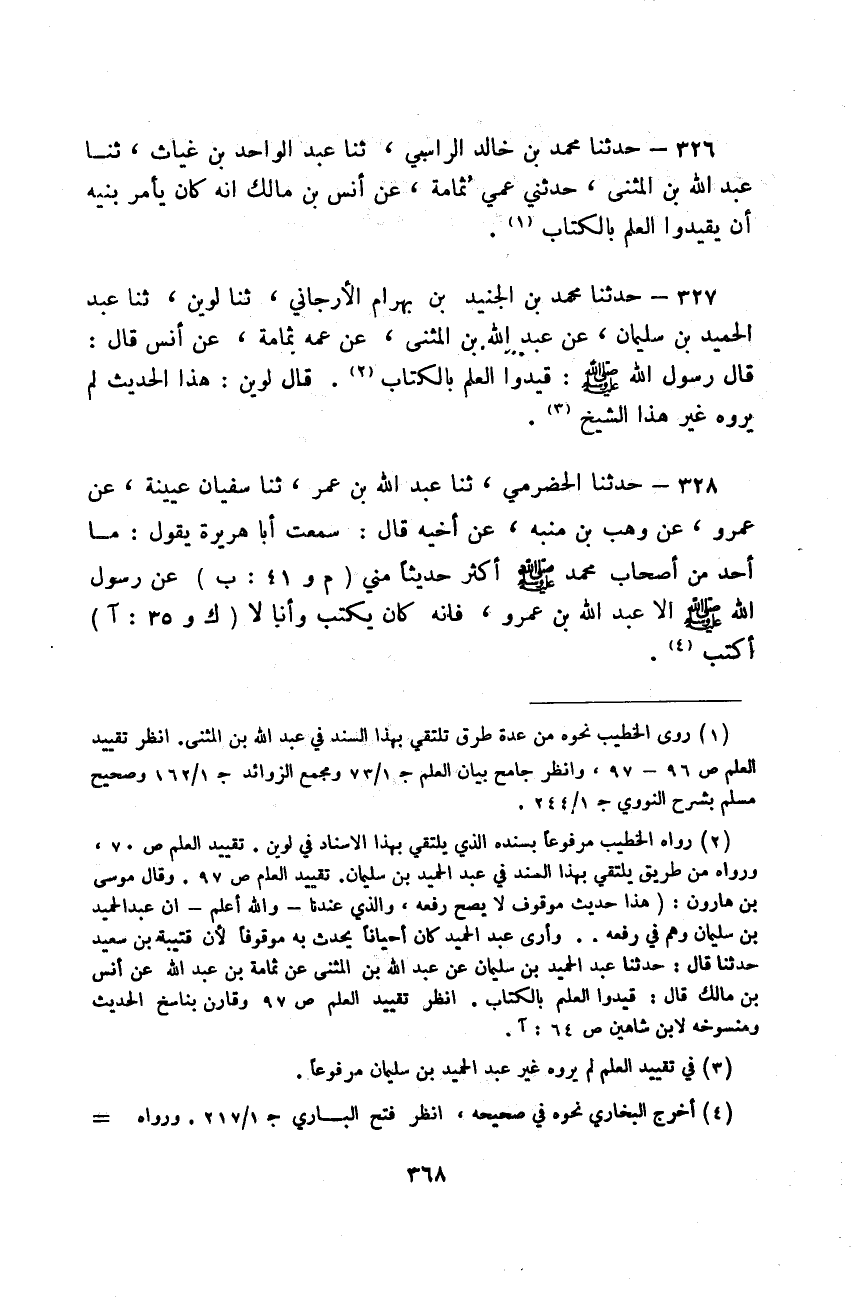 ٣٢٦ – حدثنا محمد بن خالد الراسبي ، ثنا عبد الواحد بن غياث ، ثنـا
عبد الله بن المثنى ، حدثني عمي ثُمامة ، عن أنس بن مالك انه كان يأمر بنيه
أن يقيدوا العلم بالكتاب (١) .
٣٢٧ – حدثنا محمد بن الجنيد بن بهرام الأرجاني ، ثنا لوين ، ثنا عبد
الحميد بن سليمان ، عن عبد الله بن المثنى ، عن عمه ثمامة ، عن أنس قال :
قال رسول الله ﷺ : قيدوا العلم بالكتاب (٢) . قال لوين : هذا الحديث لم
يروه غير هذا الشيخ (٣) .
٣٢٨ – حدثنا الحضرمي ، ثنا عبد الله بن عمر ، ثنا سفيان عيينة ، عن
عمرو ، عن وهب بن منبه ، عن أخيه قال : سمعت أبا هريرة يقول : مـا
أحد من أصحاب محمد ﷺ أكثر حديثاً مني ( م و ٤١ : ب ) عن رسول
الله ﷺ الا عبد الله بن عمرو ، فانه كان يكتب وأنا لا ( ك و ٣٥ : آ )
أكتب (٤) .
(١) روى الخطيب نحوه من عدة طرق تلتقي بهذا السند في عبد الله بن المثنى. انظر تقييد
العلم ص ٩٦ – ٩٧ ، وانظر جامع بيان العلم ج ٧٣/١ ومجمع الزوائد ج ١٦٢/١ وصحيح
مسلم بشرح النووي ج ٢٤٤/١ .
(٢) رواه الخطيب مرفوعاً بسنده الذي يلتقي بهذا الاسناد في لوين . تقييد العلم ص ٧٠ ،
ورواه من طريق يلتقي بهذا السند في عبد الحميد بن سليمان. تقييد العلم ص ٩٧ . وقال موسى
بن هارون : ( هذا حديث موقوف لا يصح رفعه ، والذي عندنا – والله أعلم – ان عبدالحميد
بن سليمان وهم في رفعه . . وأرى عبد الحميد كان أحياناً يحدث به موقوفاً لأن قتيبة بن سعيد
حدثنا قال : حدثنا عبد الحميد بن سليمان عن عبد الله بن المثنى عن ثمامة بن عبد الله عن أنس
بن مالك قال : قيدوا العلم بالكتاب . انظر تقييد العلم ص ٩٧ وقارن بناسخ الحديث
ومنسوخه لابن شاهين ص ٦٤ : آ .
(٣) في تقييد العلم لم يروه غير عبد الحميد بن سليمان مرفوعاً .
(٤) أخرج البخاري نحوه في صحيحه ، انظر فتح البـــاري ج ٢١٧/١ . ورواه =
٣٦٨